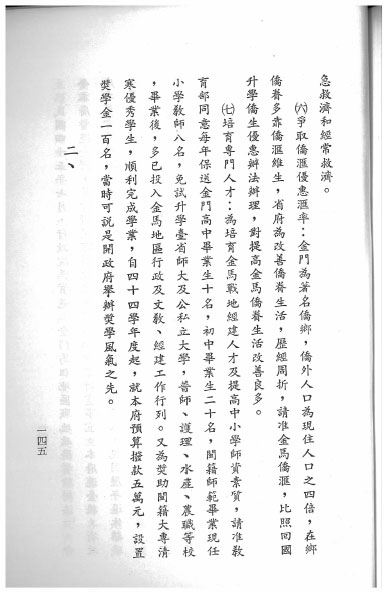 急救濟和經常救濟。
㈥爭取僑滙優惠滙率：金門為著名僑鄉，僑外人口為現住人口之四倍，在鄉
僑眷多靠僑滙維生，省府為改善僑眷生活，歷經周折，請准金馬僑滙，比照回國
升學僑生優惠辦法辦理，對提高金馬僑眷生活改善良多。
㈦培育專門人才：為培育金馬戰地經建人才及提高中小學師資素質，請准教
育部同意每年保送金門高中畢業生十名，初中畢業生二十名，閩籍師範畢業現任
小學教師八名，免試升學臺省師大及公私立大學，普師、護理、水產、農職等校
，畢業後，多已投入金馬地區行政及文教、經建工作行列。又為獎助閩籍大專清
寒優秀學生，順利完成學業，自四十四學年度起，就本府預算撥款五萬元，設置
獎學金一百名，當時可說是開政府舉辦獎學風氣之先。
二、
一四五